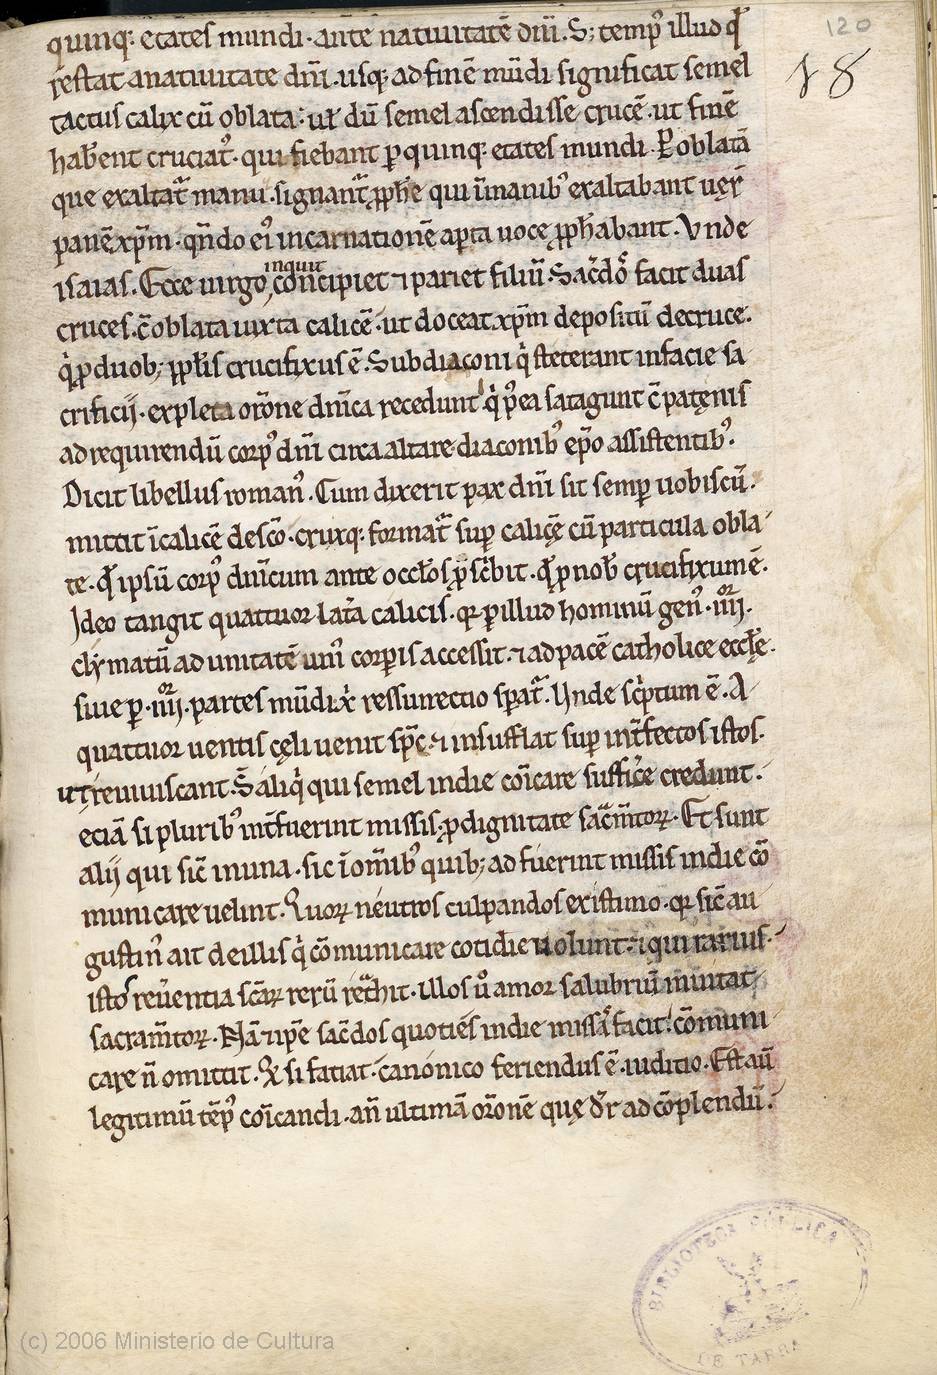 120
18
quinq; etates mundi · ante natiuitatē dñi. S; temp' illud qđ
restat a natiuitate dñi · usq; ad finē mūdi significat semel
tactus calix cū oblata · uł dū semel ascendisse crucē · ut finē
habent cruciat' · qui fiebant p quinq; etates mundi · P oblatā
que exaltat' manu · signant' pphe qui ī manib' exaltabant uerū
panē xp̄m · qn̄do ei' incarnationē apta uoce pphabant. Vnde
isaias. Ecce uirgo inquit concipiet ⁊ pariet filiū. Sacdos facit duas
cruces · c̄ oblata iuxta calicē · ut doceat xp̄m depositū de cruce ·
q̇ p duob; pplis crucifixus ē. Subdiaconi q̇ steterant in facie sa
crificij · expleta orōne dnīca recedunt q̇ p'ea satagunt c̄ patenis
ad requirendū corp' dn̄i circa altare diaconib' ep̄o assistentib'.
Dicit libellus roman'. Cum dixerit pax dn̄i sit semp uobiscū.
mittit ī calicē de sc̄o · cruxq; format' sup calicē cū particula obla
te · qđ ipsū corp' dnīcum ante occłos pscbit · qđ p nob' crucifixum ē.
Ideo tangit quattuor lata calicis · qr p illud hominū gen' · iiiiᵒʳ.
clymatū ad unitatē uni' corpis accessit · ⁊ ad pacē catholice eccłe.
siue p · iiiiᵒʳ · partes mūdi xi ressurrectio spat'. Unde scptum ē. A
quattuor uentis cęli uenit sp̄c · ⁊ insufflat sup int̄fectos istos ·
ut reuiuiscant. S aliq̇ qui semel in die coīcare sufficē credunt.
eciā si plurib' int̄fuerint missis · p dignitate sac̄mtoꝝ. Et sunt
alij qui sic̄ in una · sic ī om̄ib' quib; adfuerint missis in die cō
municare uelint. Quoꝝ neutros culpandos existimo · qr sic̄ au
gustin' ait de illis q̇ cōmunicare cotidie uolunt · ⁊ qui rarius ·
istos reuentia scāꝝ rerū ret̄hit · illos u° amor salubriū inuitat
sacram̄toꝝ. Nā ⁊ ip̄e sac̄dos quotiēs in die missā facit · cōmuni
care n̄ omittit. Qđ si fatiat · canonico feriendus ē · iuditio. Est au
legitimū tēp' coīcandi · an̄ ultimā orōnē quę dr̄ ad cōplendū.
BIBLIOTECA PUBLICA
DE TARRA
(c) 2006 Ministerio de Cultura